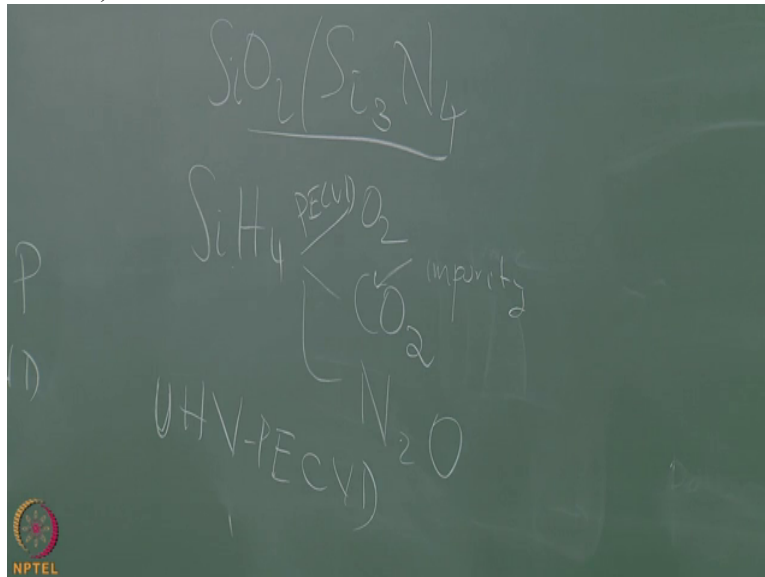 SiO2/Si3N4
SiH4 PECVD O2
CO2 impurity
N2O
UHV-PECVD
P
D
NPTEL